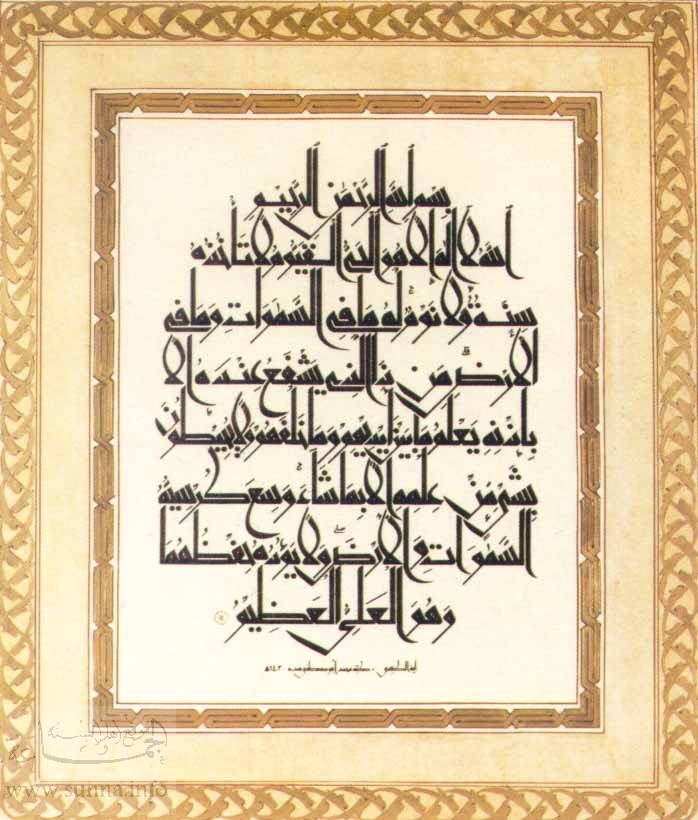 بسم الله الرحمن الرحيم
الله لا إله إلا هو الحي القيوم لا تأخذه
سنة ولا نوم له ما في السموات وما في
الأرض من ذا الذي يشفع عنده إلا
بإذنه يعلم ما بين أيديهم وما خلفهم ولا يحيطون
بشيء من علمه إلا بما شاء وسع كرسيه
السموات والأرض ولا يؤده حفظهما
وهو العلي العظيم
آية الكرسي
www.sunna.info